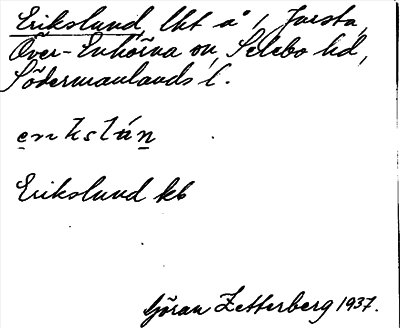 Erikslund, lht å 1, Jursta,
Över-Enhörna sn, Selebo hd,
Södermanlands l.
erikslún
Erikslund kb
Göran Zetterberg 1937.